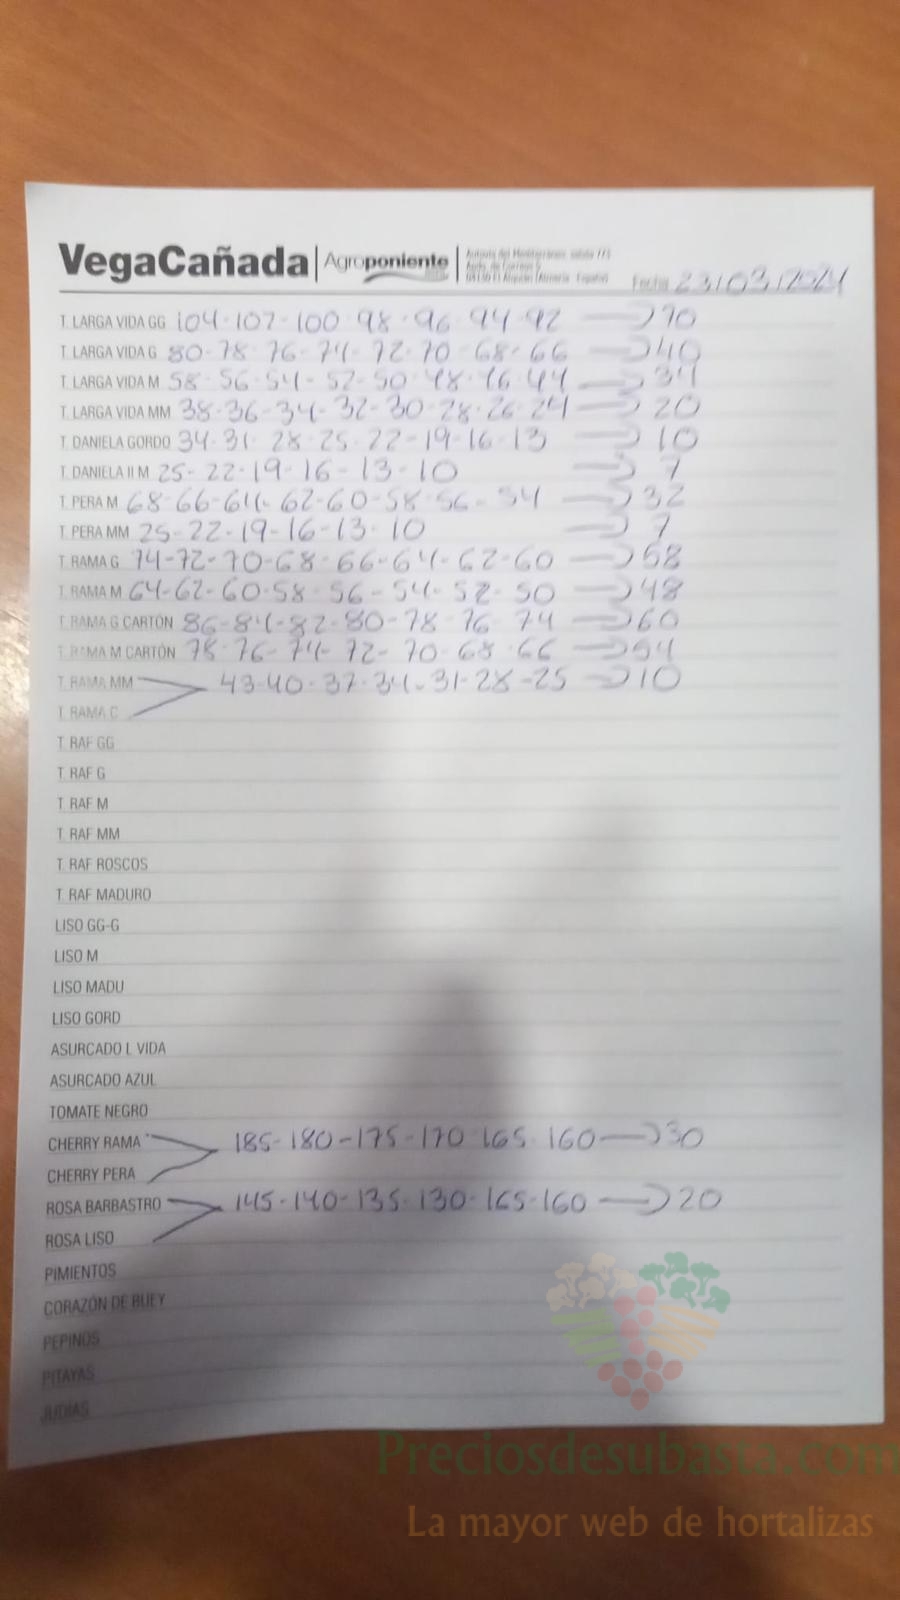 VegaCañada | Agroponiente
Fecha 23/03/2024
T. LARGA VIDA GG 104-107-100-98-96-94-92 → 70
T. LARGA VIDA G 80-78-76-74-72-70-68-66 → 40
T. LARGA VIDA M 58-56-54-52-50-48-46-44 → 34
T. LARGA VIDA MM 38-36-34-32-30-28-26-24 → 20
T. DANIELA GORDO 34-31-28-25-22-19-16-13 → 10
T. DANIELA II M 25-22-19-16-13-10 → 7
T. PERA M 68-66-64-62-60-58-56-54 → 32
T. PERA MM 25-22-19-16-13-10 → 7
T. RAMA G 74-72-70-68-66-64-62-60 → 58
T. RAMA M 64-62-60-58-56-54-52-50 → 48
T. RAMA G CARTÓN 86-84-82-80-78-76-74 → 60
T. RAMA M CARTÓN 78-76-74-72-70-68-66 → 54
T. RAMA MM 43-40-37-34-31-28-25 → 10
T. RAMA C
T. RAF GG
T. RAF G
T. RAF M
T. RAF MM
T. RAF ROSCOS
T. RAF MADURO
LISO GG-G
LISO M
LISO MADU
LISO GORD
ASURCADO L VIDA
ASURCADO AZUL
TOMATE NEGRO
CHERRY RAMA 185-180-175-170-165-160 → 30
CHERRY PERA
ROSA BARBASTRO 145-140-135-130-165-160 → 20
ROSA LISO
PIMIENTOS
CORAZÓN DE BUEY
PEPINOS
PITAYAS
JUDIAS
Preciosdesubasta.com
La mayor web de hortalizas